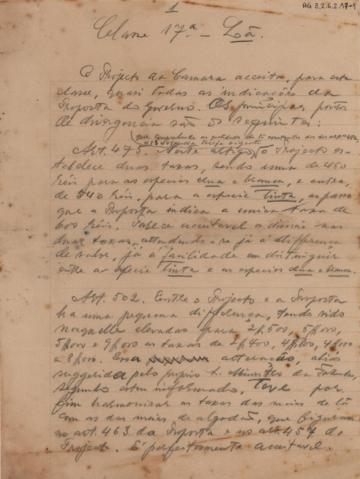 1
AG 3.2.6.2.17-1
Classe 17.ª — Lã.
O Projecto da Camara acceita, para esta
classe, quasi todas as indicações da
Proposta do Governo. Os principaes pontos
de divergencia são os seguintes:
Art. 475 — O Projecto es-
tabelece duas taxas, sendo uma de 450
réis para as especies crua e branca, e outra,
de 540 réis, para a especie tinta, ao passo
que a Proposta indica a unica taxa de
600 réis. Parece acceitavel a divisão nas
duas taxas, attendendo-se já á differença
de valor, já á facilidade em distinguir
entre as especie tinta e as especies crua e branca.
Art. 502. Entre o Projecto e a Proposta
ha uma pequena differença, tendo sido
naquelle elevadas para 2$500, 5$000,
5$000 e 9$000 as taxas de 2$400, 4$800, 4$000
e 8$000. Essa alteração, aliás
suggerida pelo proprio Ministro da Fazenda,
segundo estou informado, teve por
fim harmonisar as taxas das meias de lã
com as das meias de algodão, que figuram
no art. 463 da Proposta e no art. 457 do
Projecto. É perfeitamente acceitavel.